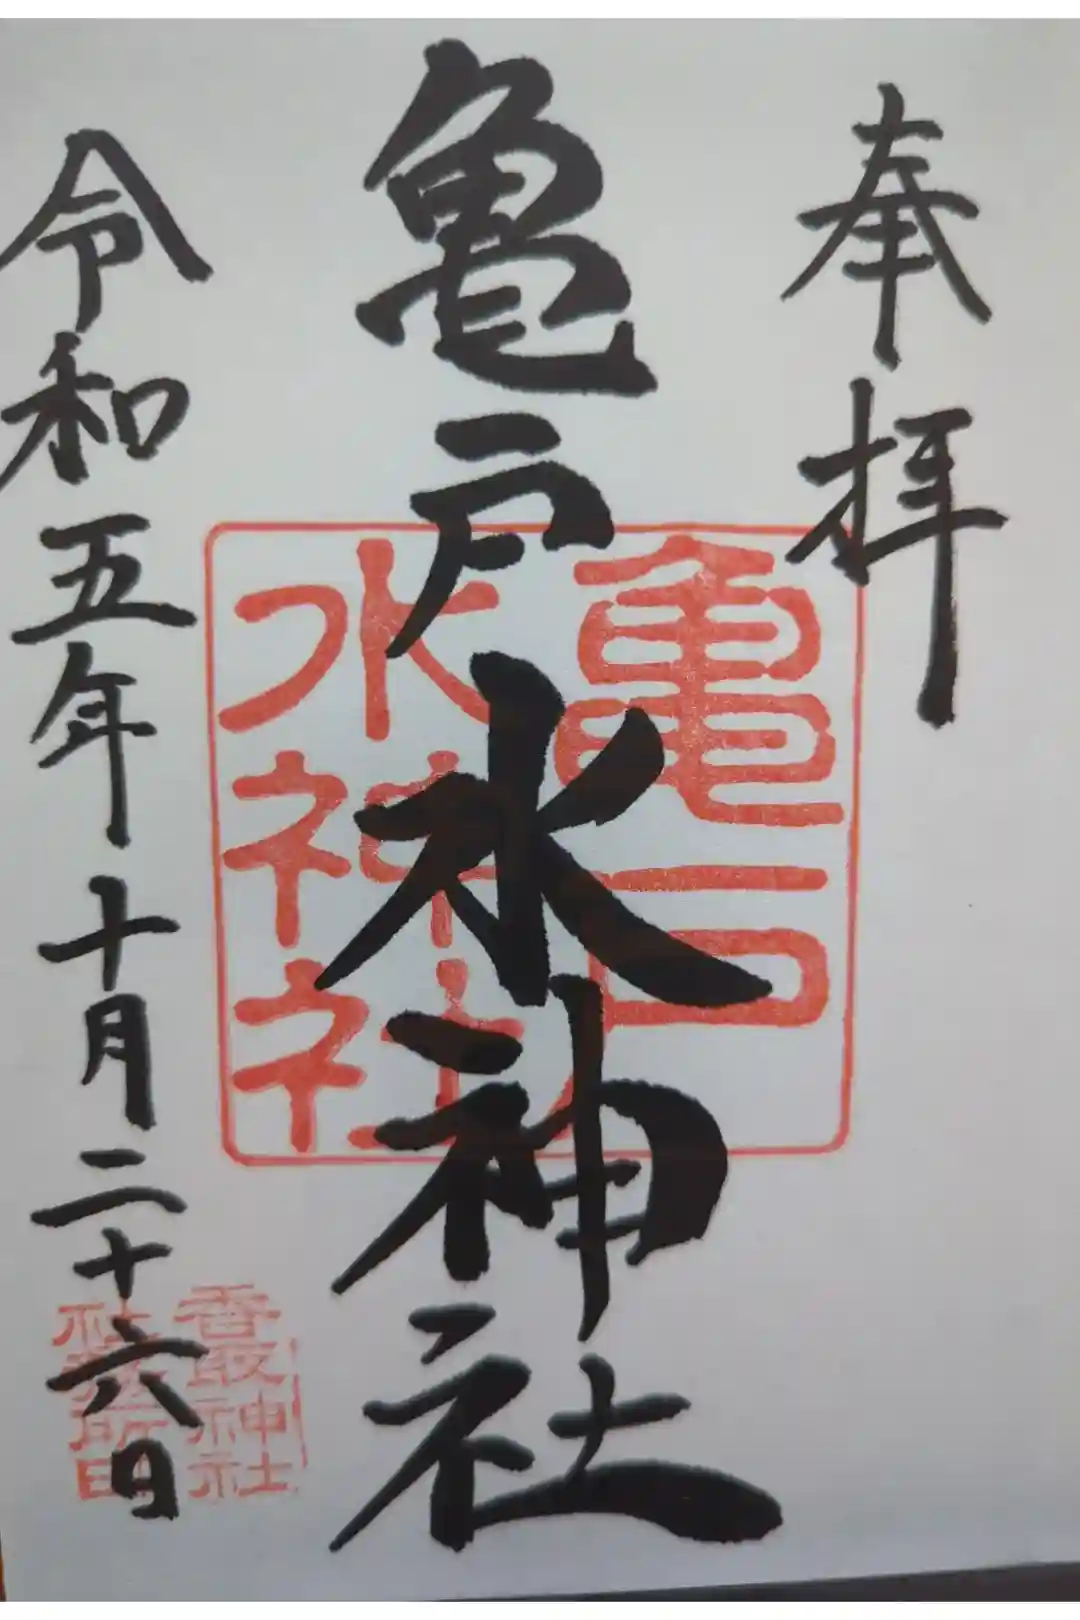 奉拝
亀戸水神社
令和五年十月二十六日
亀戸
水神社
香取神社
社務所印